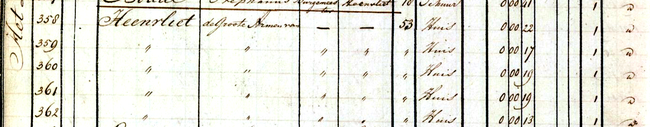 358 Heenvliet de Groote Armen van — — 53 Huis 0 00 22 1 "
359 " " " " " Huis 0 00 17 1 "
360 " " " " " Huis 0 00 19 1 "
361 " " " " " Huis 0 00 19 1 "
362 " " " " " Huis 0 00 13 1 "